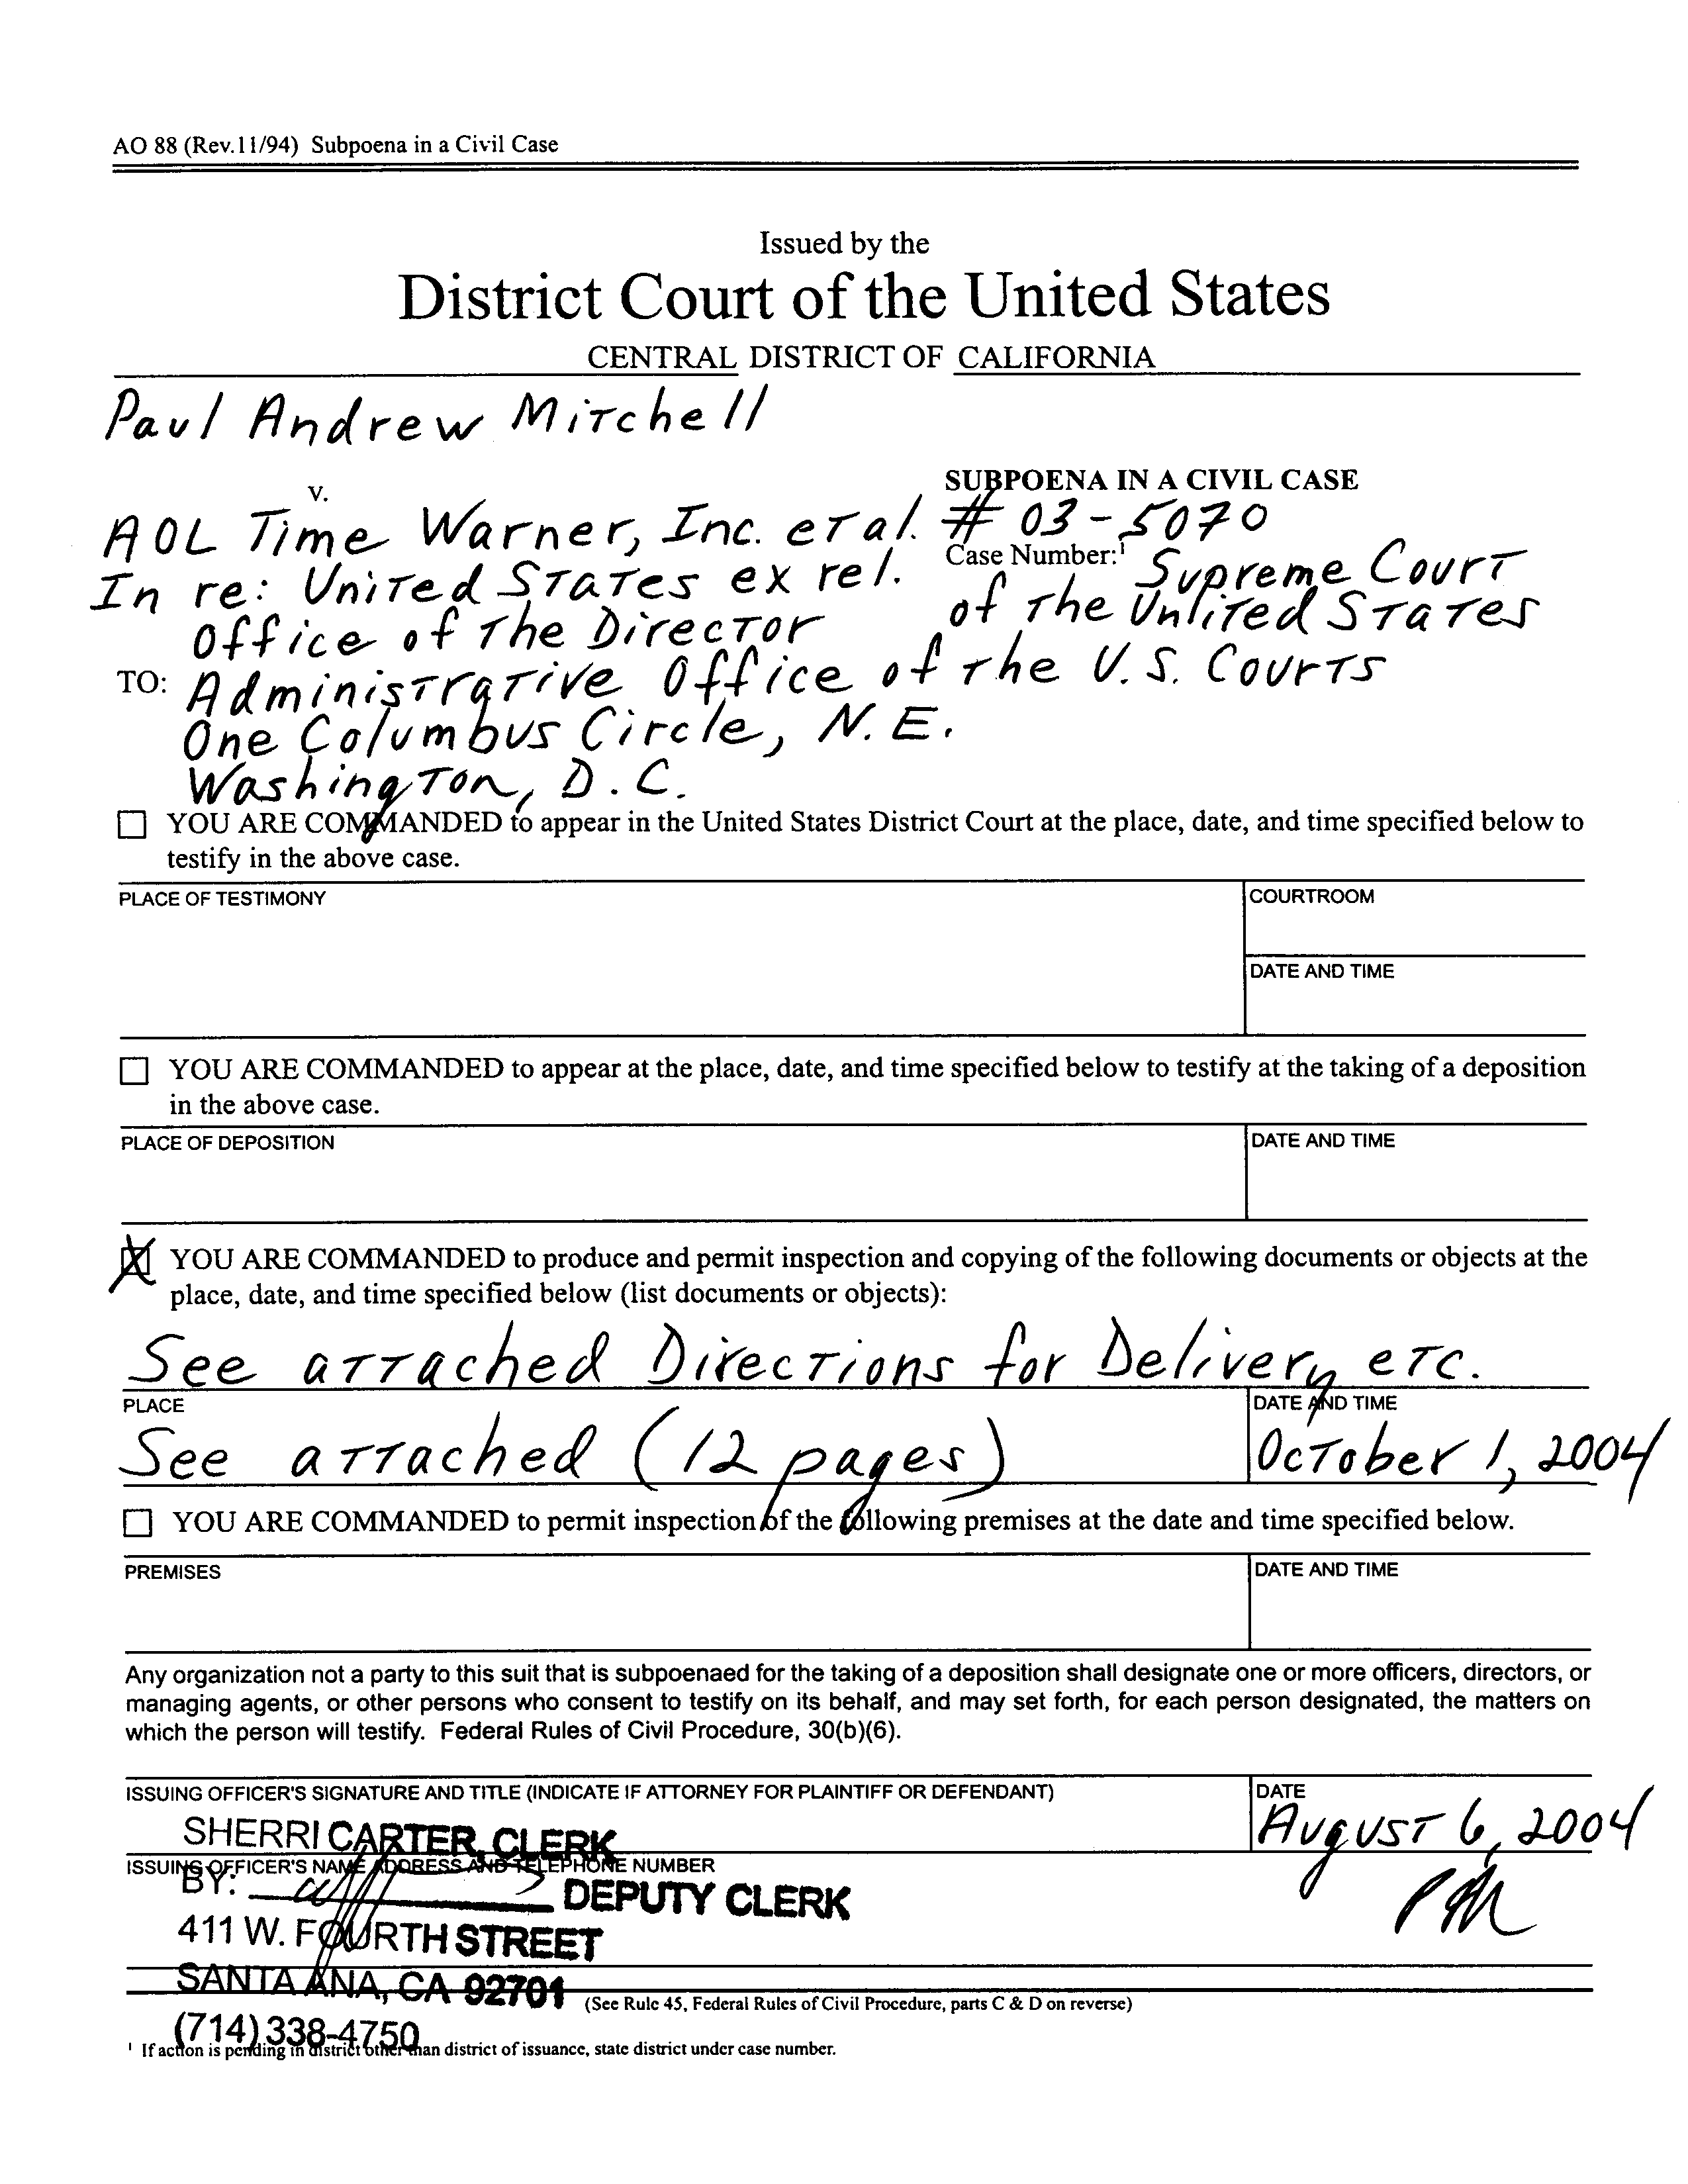 AO 88 (Rev.11/94) Subpoena in a Civil Case
Issued by the
District Court of the United States
CENTRAL DISTRICT OF CALIFORNIA
Paul Andrew Mitchell
v.
AOL Time Warner, Inc. et al.
In re: United States ex rel.
SUBPOENA IN A CIVIL CASE
# 03-5070
Case Number:¹ Supreme Court
of the United States
Office of the Director
TO: Administrative Office of the U.S. Courts
One Columbus Circle, N.E.
Washington, D.C.
☐ YOU ARE COMMANDED to appear in the United States District Court at the place, date, and time specified below to
testify in the above case.
PLACE OF TESTIMONY
COURTROOM
DATE AND TIME
☐ YOU ARE COMMANDED to appear at the place, date, and time specified below to testify at the taking of a deposition
in the above case.
PLACE OF DEPOSITION
DATE AND TIME
☒ YOU ARE COMMANDED to produce and permit inspection and copying of the following documents or objects at the
place, date, and time specified below (list documents or objects):
See attached Directions for Delivery etc.
PLACE
DATE AND TIME
See attached (12 pages)
October 1, 2004
☐ YOU ARE COMMANDED to permit inspection of the following premises at the date and time specified below.
PREMISES
DATE AND TIME
Any organization not a party to this suit that is subpoenaed for the taking of a deposition shall designate one or more officers, directors, or
managing agents, or other persons who consent to testify on its behalf, and may set forth, for each person designated, the matters on
which the person will testify. Federal Rules of Civil Procedure, 30(b)(6).
ISSUING OFFICER'S SIGNATURE AND TITLE (INDICATE IF ATTORNEY FOR PLAINTIFF OR DEFENDANT)
DATE
SHERRI CARTER, CLERK
August 6, 2004
ISSUING OFFICER'S NAME ADDRESS AND TELEPHONE NUMBER
BY: DEPUTY CLERK
PAM
411 W. FOURTH STREET
SANTA ANA, CA 92701
(See Rule 45, Federal Rules of Civil Procedure, parts C & D on reverse)
(714) 338-4750
¹ If action is pending in district other than district of issuance, state district under case number.